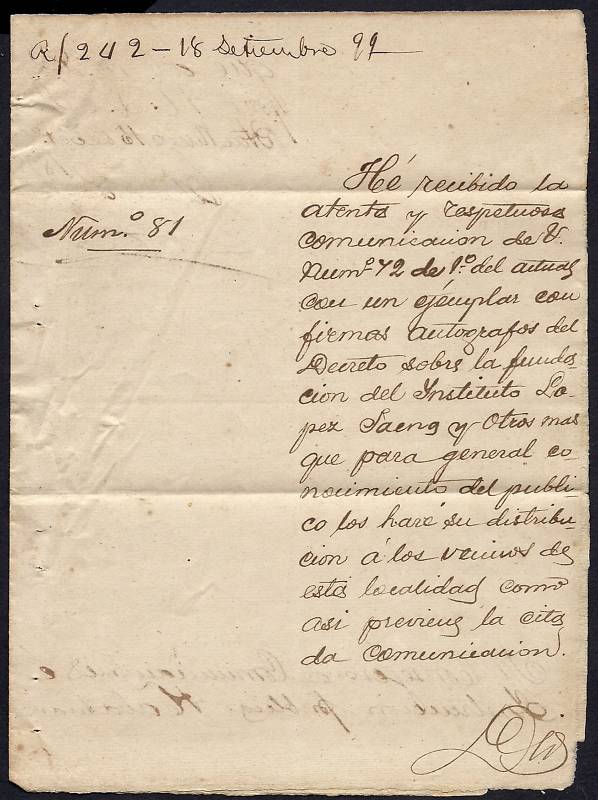 R/242-18 Setiembre 99
Num.º 81
Hé recibido la
atenta y respetuosa
comunicacion de V.
Num.º 72 de 1.º del actual
con un ejémplar con
firmas autografos del
Decreto sobre la funda-
cion del Instituto Lo-
pez Jaena y otros mas
que para general co
nocimiento del publi
co los haré su distribu
cion á los vecinos de
esta localidad como
asi previene la cita
da comunicacion.